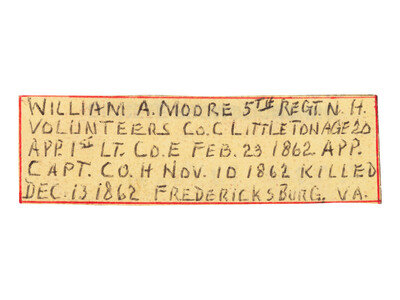 WILLIAM A. MOORE 5TH REGT. N. H.
VOLUNTEERS CO. C LITTLETON AGE 20
APP. 1ST LT. CO. E FEB. 23 1862 APP.
CAPT. CO. H NOV. 10 1862 KILLED
DEC. 13 1862 FREDERICKSBURG, VA.